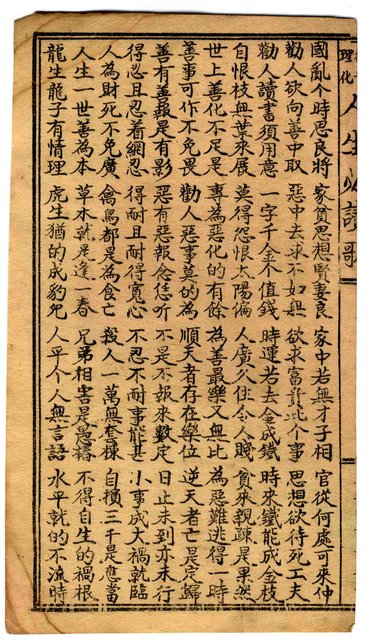 理化 人生必讀歌
國亂个時思良將 家貧思想賢妻良 家中若無才子相 官從何處可來仲
勸人欲向善中取 惡中去求不如無 欲求富許此个事 思想欲待死工夫
勸人讀書須用意 一字千金个值錢 時運若去金成鐵 時來鐵能成金枝
自恨枝無葉來展 莫得怨恨太陽偏 人广久住令人賤 貧來親踈是果然
世上善化不足是 專為惡化的有餘 為善最樂又無比 為惡難逃得一時
善事可作不免畏 勸人惡事莫的為 順天者存在樂位 逆天者亡是定歸
善有善報是有影 惡有惡報唸恁听 不是不報來數定 日止未到亦未行
得忍且忍着綱忍 得耐且耐得寬心 不忍不耐事能甚 小事成大禍就臨
人為財死不免廣 禽鳥都是為食亡 殺人一萬無奪 自損三千是應當
人生一世善為本 草木就是逢一春 兄弟相害是愚 不得自生的禍根
龍生龍子有情理 虎生猶的成豹兕 人平个人無言語 水平就的不流時